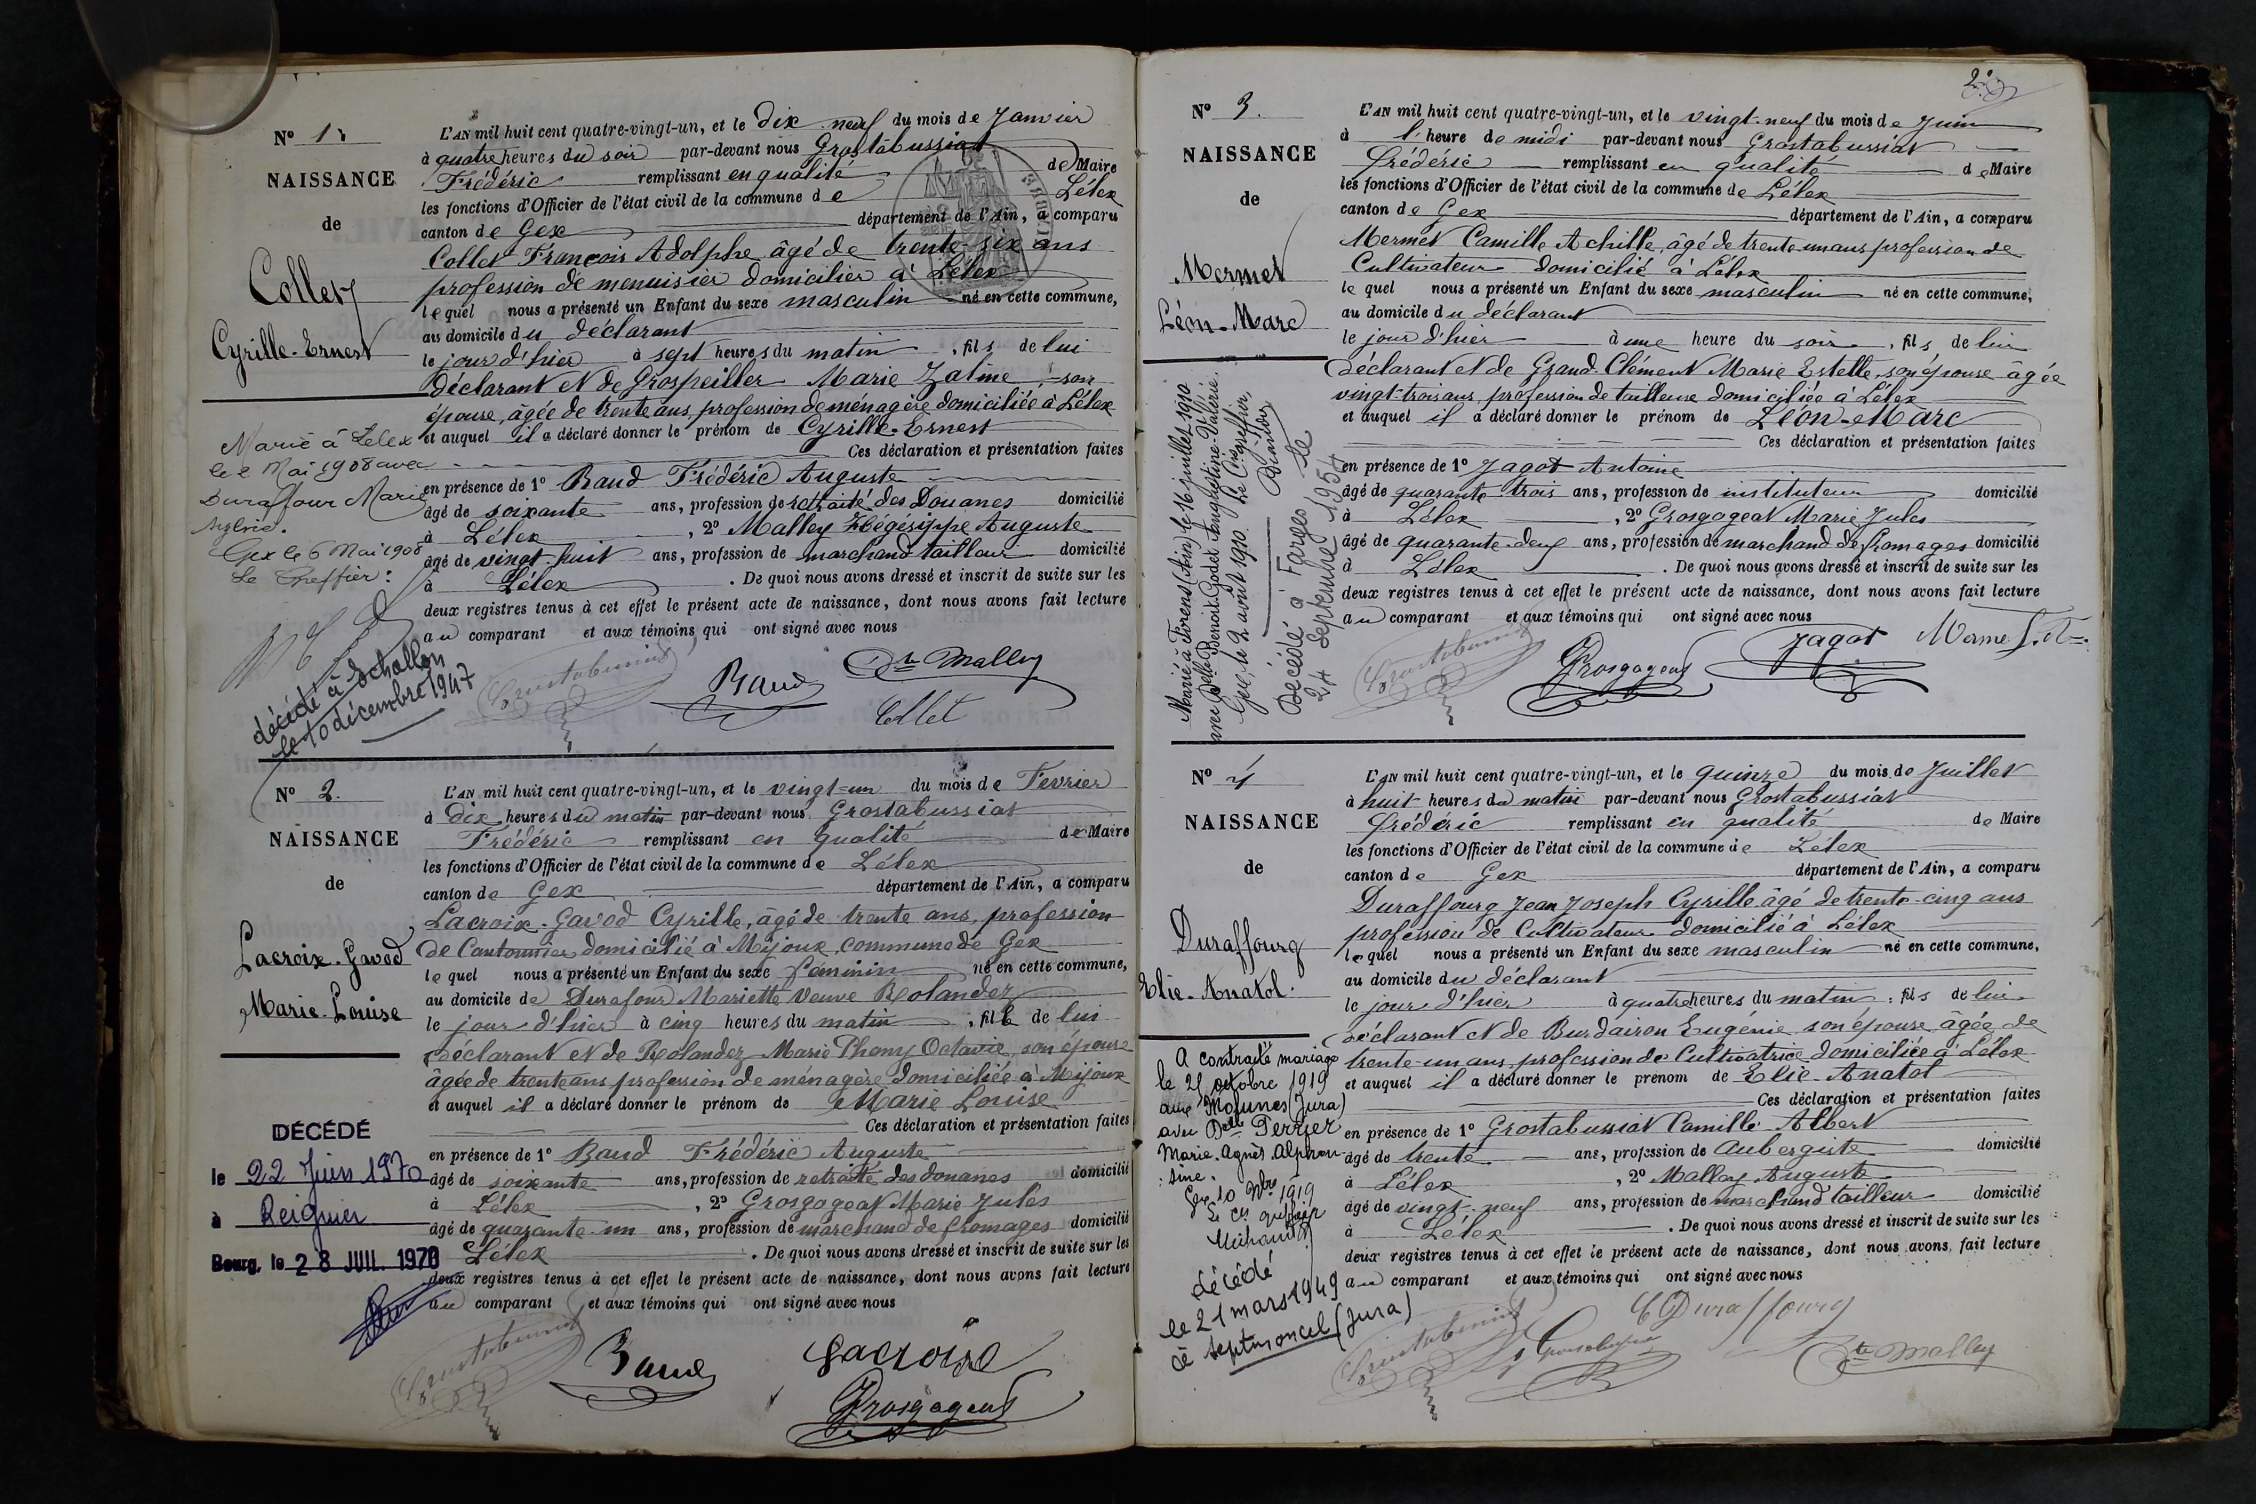 N° 1
NAISSANCE
de
Collet
Cyrille-Ernest
Marié à Lélex
le 2 Mai 1908 avec
Duraffour Marie
Sylvie.
Gex le 6 Mai 1908
Le Greffier:
décédé à Echallon
le 10 décembre 1947
L'AN mil huit cent quatre-vingt-un, et le dix neuf du mois de Janvier
à quatre heures du soir par-devant nous Grostabussiat
Frédéric remplissant en qualité de Maire
les fonctions d'Officier de l'état civil de la commune de Lélex
canton de Gex département de l'Ain, a comparu
Collet François Adolphe âgé de trente-six ans
profession de menuisier domicilier à Lélex
lequel nous a présenté un Enfant du sexe masculin né en cette commune,
au domicile du déclarant
le jour d'hier à sept heures du matin, fils de lui
déclarant et de Grospeiller Marie Zaline, son
épouse, âgée de trente ans, profession de ménagère domiciliée à Lélex
et auquel il a déclaré donner le prénom de Cyrille-Ernest
Ces déclaration et présentation faites
en présence de 1° Baud Frédéric Auguste
âgé de soixante ans, profession de retraité des Douanes domicilié
à Lélex, 2° Malley Hégésippe Auguste
âgé de vingt-huit ans, profession de marchand tailleur domicilié
à Lélex. De quoi nous avons dressé et inscrit de suite sur les
deux registres tenus à cet effet le présent acte de naissance, dont nous avons fait lecture
au comparant et aux témoins qui ont signé avec nous
Grostabussiat Baud Malley
Collet
N° 2.
NAISSANCE
de
Lacroix-Gavod
Marie-Louise
DÉCÉDÉ
le 22 Juin 1970
à Reignier
Bourg, le 28 JUIL. 1970
L'AN mil huit cent quatre-vingt-un, et le vingt-un du mois de Fevrier
à dix heures du matin par-devant nous Grostabussiat
Frédéric remplissant en qualité de Maire
les fonctions d'Officier de l'état civil de la commune de Lélex
canton de Gex département de l'Ain, a comparu
Lacroix-Gavod Cyrille, âgé de trente ans, profession
de Cantonnier domicilié à Mijoux, commune de Gex
lequel nous a présenté un Enfant du sexe féminin né en cette commune,
au domicile de Durafour Mariette Veuve Rolandez
le jour d'hier à cinq heures du matin, fille de lui
déclarant et de Rolandez Marie Phany Octavie, son épouse
âgée de trente ans profession de ménagère domiciliée à Mijoux
et auquel il a déclaré donner le prénom de Marie Louise
Ces déclaration et présentation faites
en présence de 1° Baud Frédéric Auguste
âgé de soixante ans, profession de retraité des douanes domicilié
à Lélex, 2° Grosgogeat Marie Jules
âgé de quarante-un ans, profession de marchand de fromages domicilié
Lélex. De quoi nous avons dressé et inscrit de suite sur les
deux registres tenus à cet effet le présent acte de naissance, dont nous avons fait lecture
au comparant et aux témoins qui ont signé avec nous
Grostabussiat Baud Lacroix
Grosgogeat
N° 3.
NAISSANCE
de
Mermet
Léon-Marc
Marié à Firens (Ain) le 16 juillet 1910
avec Delle Benoit-Godet Angeline-Valérie.
Gex, le 2 août 1910. Le Cis greffier,
Décédé à Farges le
24 Septembre 1954
L'AN mil huit cent quatre-vingt-un, et le vingt-neuf du mois de Juin
à l'heure de midi par-devant nous Grostabussiat
Frédéric remplissant en qualité de Maire
les fonctions d'Officier de l'état civil de la commune de Lélex
canton de Gex département de l'Ain, a comparu
Mermet Camille Achille, âgé de trente-un ans profession de
Cultivateur domicilié à Lélex
lequel nous a présenté un Enfant du sexe masculin né en cette commune,
au domicile du déclarant
le jour d'hier à une heure du soir, fils de lui
déclarant et de Grand-Clément Marie Estelle, son épouse âgée
vingt-trois ans, profession de tailleuse domiciliée à Lélex
et auquel il a déclaré donner le prénom de Léon-Marc
Ces déclaration et présentation faites
en présence de 1° Jagot Antoine
âgé de quarante-trois ans, profession de instituteur domicilié
à Lélex, 2° Grosgogeat Marie Jules
âgé de quarante-deux ans, profession de marchand de fromages domicilié
à Lélex. De quoi nous avons dressé et inscrit de suite sur les
deux registres tenus à cet effet le présent acte de naissance, dont nous avons fait lecture
au comparant et aux témoins qui ont signé avec nous
Grostabussiat Grosgogeat Jagot Mermet
N° 4
NAISSANCE
de
Duraffourg
Elie-Anatol.
A contracté mariage
le 25 octobre 1919
aux Molunes (Jura)
avec Delle Perrier
Marie-Agnès Alphon-
sine.
Gex 10 Nbre 1919
Le cis greffier
décédé
le 21 mars 1949
à Septmoncel (Jura)
L'AN mil huit cent quatre-vingt-un, et le quinze du mois de Juillet
à huit heures du matin par-devant nous Grostabussiat
Frédéric remplissant en qualité de Maire
les fonctions d'Officier de l'état civil de la commune de Lélex
canton de Gex département de l'Ain, a comparu
Duraffourg Jean Joseph Cyrille âgé de trente-cinq ans
profession de Cultivateur domicilié à Lélex
lequel nous a présenté un Enfant du sexe masculin né en cette commune,
au domicile du déclarant
le jour d'hier à quatre heures du matin, fils de lui
déclarant et de Burdairon Eugénie son épouse âgée de
trente-un ans, profession de Cultivatrice domiciliée à Lélex
et auquel il a déclaré donner le prénom de Elie-Anatol
Ces déclaration et présentation faites
en présence de 1° Grostabussiat Camille Albert
âgé de trente ans, profession de Aubergiste domicilié
à Lélex, 2° Malley Auguste
âgé de vingt-neuf ans, profession de marchand tailleur domicilié
à Lélex. De quoi nous avons dressé et inscrit de suite sur les
deux registres tenus à cet effet le présent acte de naissance, dont nous avons fait lecture
au comparant et aux témoins qui ont signé avec nous
C Duraffourg
Grostabussiat Malley